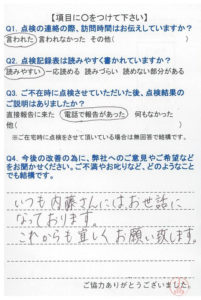 【項目に○をつけて下さい】
Q1. 点検の連絡の際、訪問時間はお伝えしていますか？
言われた 言われなかった その他(　　　)
Q2. 点検記録表は読みやすく書かれていますか？
読みやすい 一応読める 読みづらい 読めない部分がある
Q3. ご不在時に点検させていただいた後、点検結果の
ご説明はありましたか？
直接報告に来た 電話で報告があった 何もなかった
他(　　　)
※ご在宅時に点検をさせて頂いている場合は無回答で結構です。
Q4. 今後の改善の為に、弊社へのご意見やご希望など
をお聞かせください。ご不満やお叱りなど、どのようなこと
でも結構です。
いつも内藤さんにはお世話に
なっております。
これからも宜しくお願い致します。
ご協力ありがとうございました。